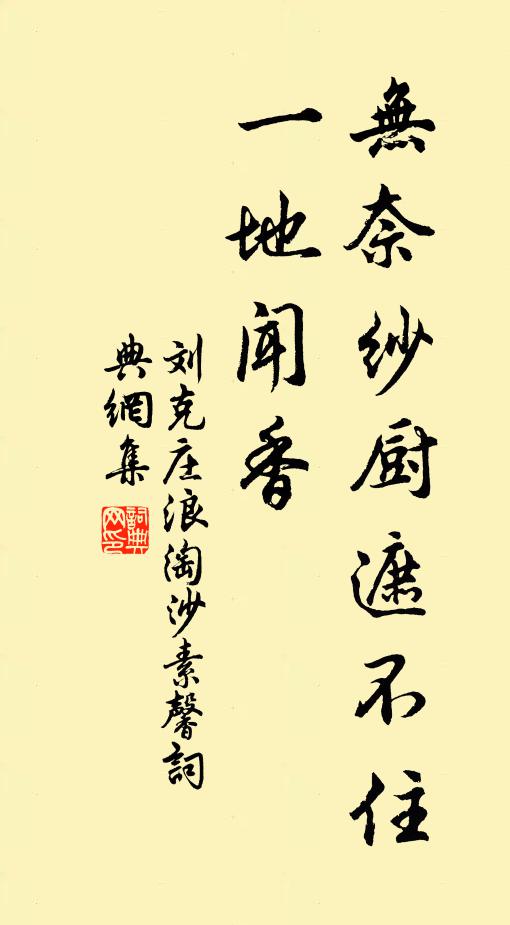 無奈紗厨遮不住
一地聞香
刘克庄浪淘沙素馨詞
典網集
詞典
网印